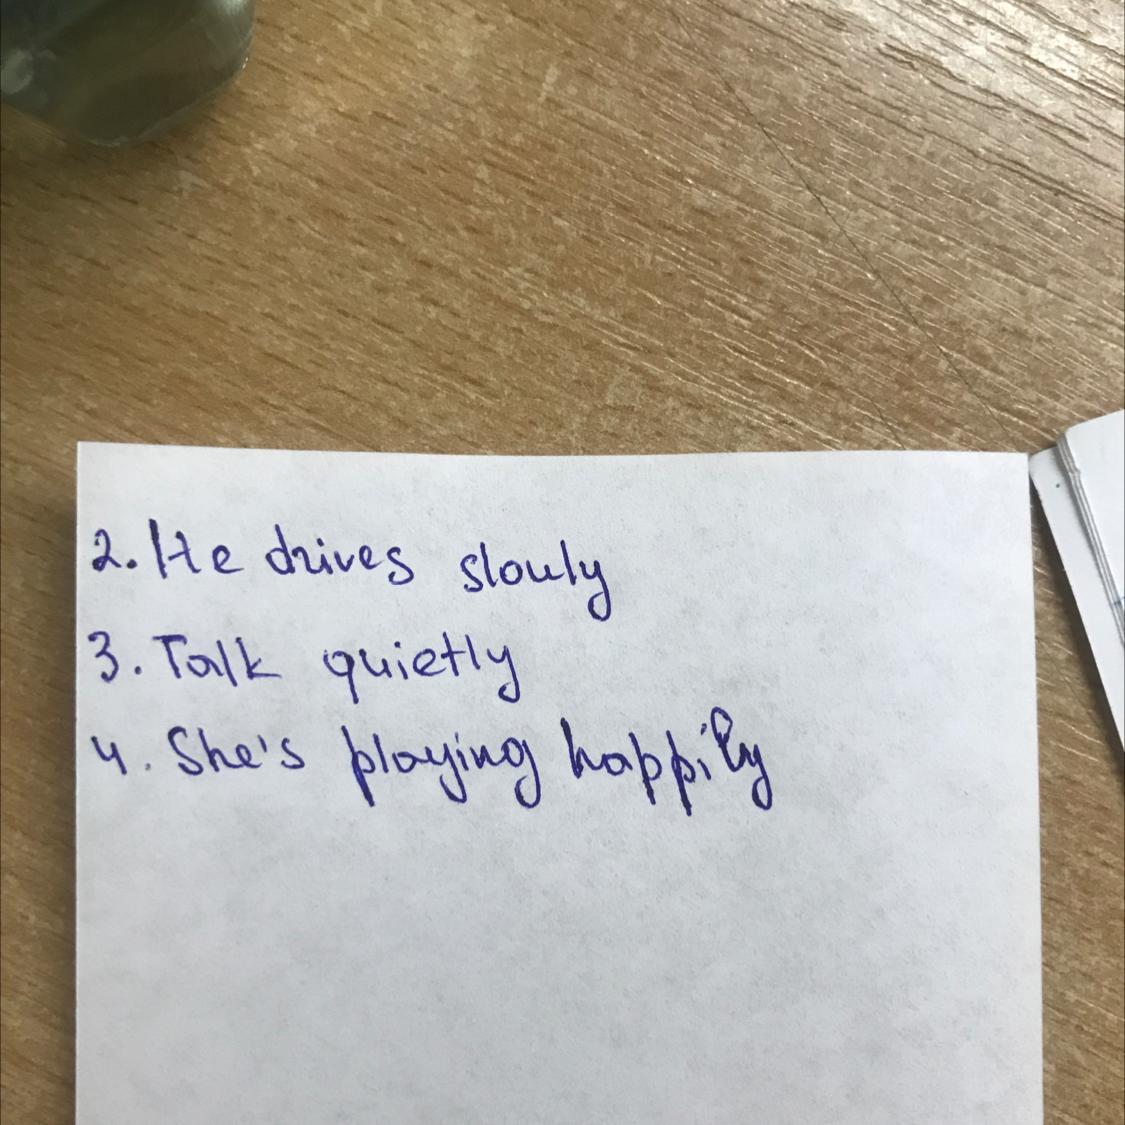 2. He drives slowly
3. Talk quietly
4. She's playing happily